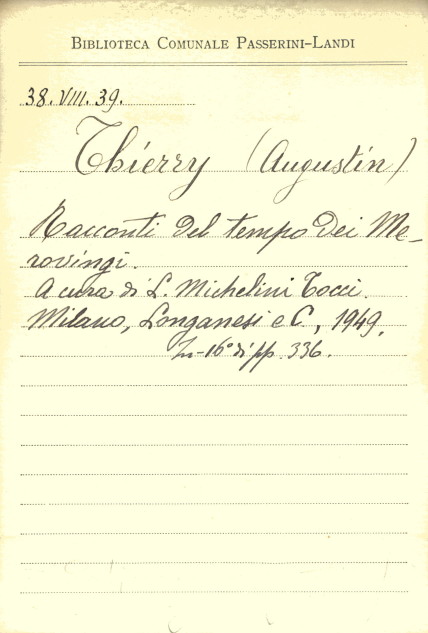 BIBLIOTECA COMUNALE PASSERINI-LANDI
38. VIII. 39.
Thierry (Augustin)
Racconti del tempo dei Me-
rovingi.
A cura di L. Michelini Tocci.
Milano, Longanesi e C., 1949.
In-16° di pp. 336.